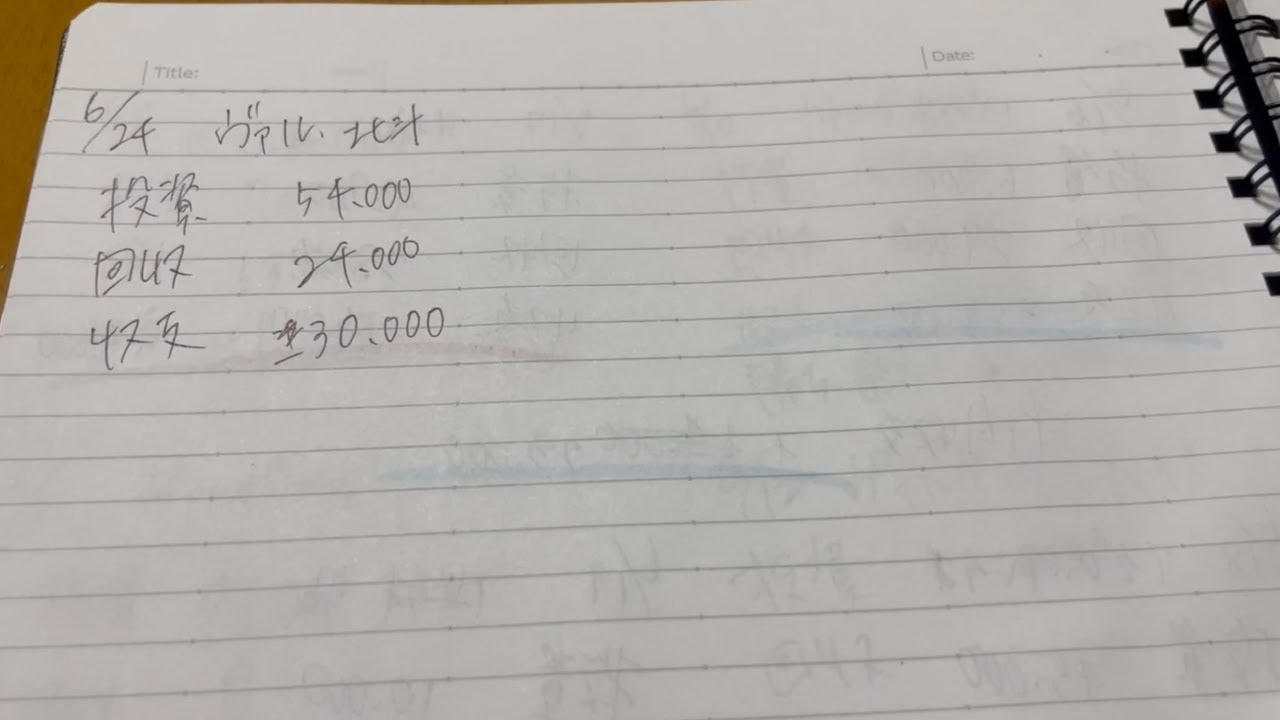 Title:
Date:
6/24 ヴァル、北斗
投資 54.000
回収 24.000
収支 30.000